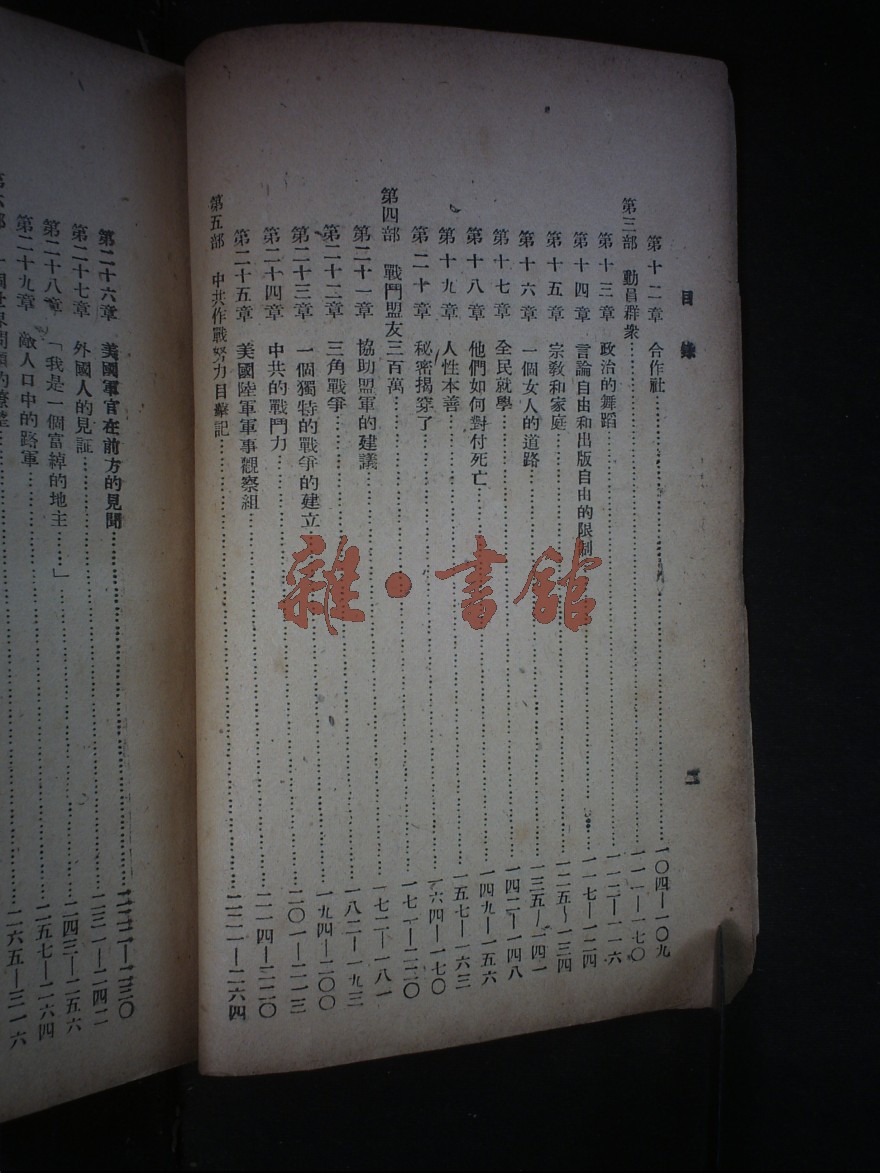 目錄
二
第十二章 合作社……一〇四—一〇九
第三部 動員群衆……一一一—一七〇
第十三章 政治的舞蹈……一一二—一一六
第十四章 言論自由和出版自由的限制……一一七—一二四
第十五章 宗敎和家庭……一二五—一三四
第十六章 一個女人的道路……一三五—一四一
第十七章 全民就學……一四二—一四八
第十八章 他們如何對付死亡……一四九—一五六
第十九章 人性本善……一五七—一六三
第二十章 秘密揭穿了……一六四—一七〇
第四部 戰鬥盟友三百萬……一七一—二二〇
第二十一章 協助盟軍的建議……一七二—一八一
第二十二章 三角戰爭……一八二—一九三
第二十三章 一個獨特的戰爭的建立……一九四—二〇〇
第二十四章 中共的戰鬥力……二〇一—二一三
第二十五章 美國陸軍軍事觀察組……二一四—二二〇
第五部 中共作戰努力目擊記……二二一—二六四
第二十六章 美國軍官在前方的見聞……二二二—二三〇
第二十七章 外國人的見証……二三一—二四二
第二十八章 「我是一個富綽的地主……」……二四三—二五六
第二十九章 敵人口中的路軍……二五七—二六四
第六部 一個世界問題的……二六五—三一六
雜·書館